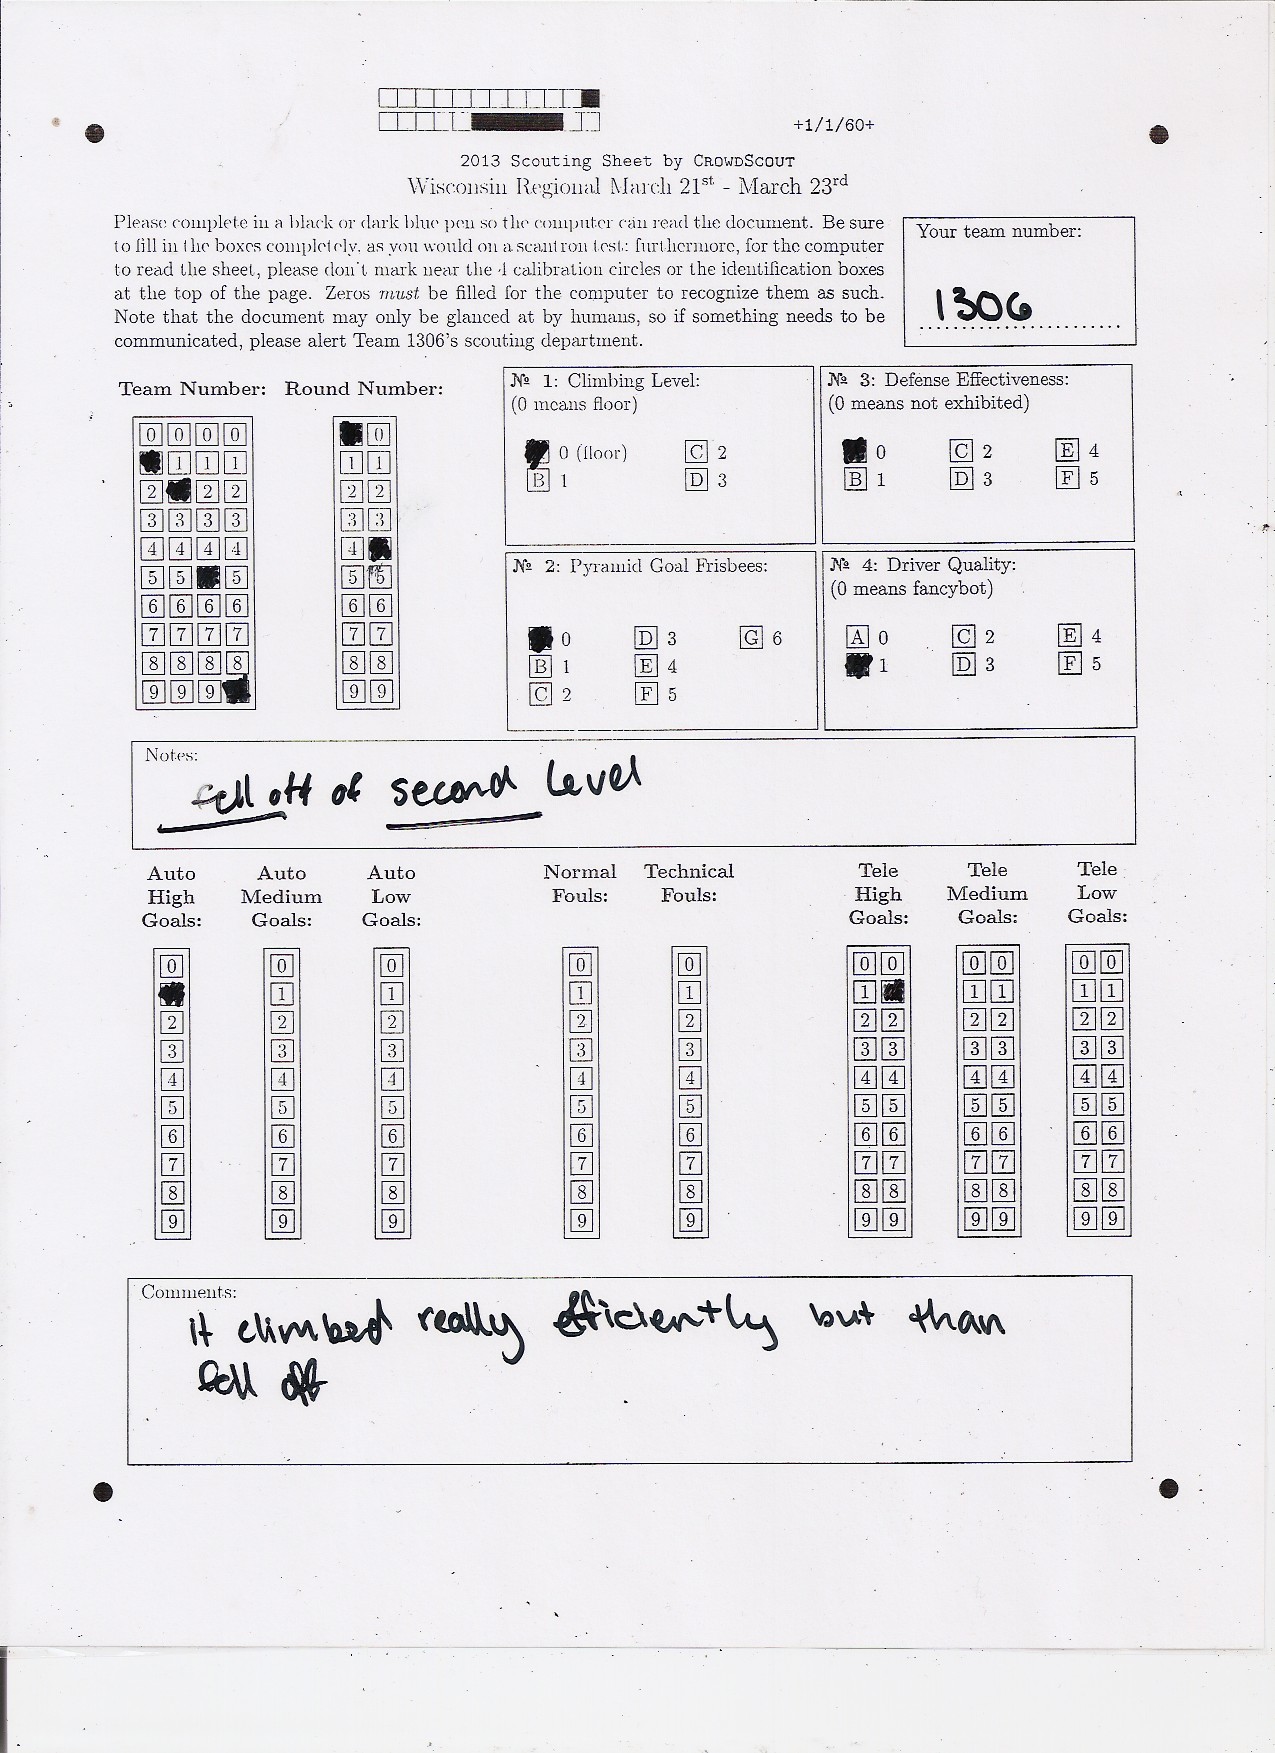 +1/1/60+
2013 Scouting Sheet by CROWDSCOUT
Wisconsin Regional March 21st - March 23rd
Please complete in a black or dark blue pen so the computer can read the document. Be sure
to fill in the boxes completely, as you would on a scantron test; furthermore, for the computer
to read the sheet, please don't mark near the 4 calibration circles or the identification boxes
at the top of the page. Zeros must be filled for the computer to recognize them as such.
Note that the document may only be glanced at by humans, so if something needs to be
communicated, please alert Team 1306's scouting department.
Your team number:
1306
Team Number: Round Number:
0 0 0 0 0
1 1 1 1 1
2 2 2 2 2
3 3 3 3 3 3
4 4 4 4 4
5 5 5 5 5
6 6 6 6 6 6
7 7 7 7 7 7
8 8 8 8 8 8
9 9 9 9 9
№ 1: Climbing Level:
(0 means floor)
0 (floor) C 2
B 1 D 3
№ 3: Defense Effectiveness:
(0 means not exhibited)
0 C 2 E 4
B 1 D 3 F 5
№ 2: Pyramid Goal Frisbees:
0 D 3 G 6
B 1 E 4
C 2 F 5
№ 4: Driver Quality:
(0 means fancybot)
A 0 C 2 E 4
1 D 3 F 5
Notes:
fell off of second level
Auto Auto Auto Normal Technical Tele Tele Tele
High Medium Low Fouls: Fouls: High Medium Low
Goals: Goals: Goals: Goals: Goals: Goals:
0 0 0 0 0 0 0 0 0 0 0
1 1 1 1 1 1 1 1 1
2 2 2 2 2 2 2 2 2 2 2
3 3 3 3 3 3 3 3 3 3 3
4 4 4 4 4 4 4 4 4 4 4
5 5 5 5 5 5 5 5 5 5 5
6 6 6 6 6 6 6 6 6 6 6
7 7 7 7 7 7 7 7 7 7 7
8 8 8 8 8 8 8 8 8 8 8
9 9 9 9 9 9 9 9 9 9 9
Comments:
it climbed really efficiently but than
fell off